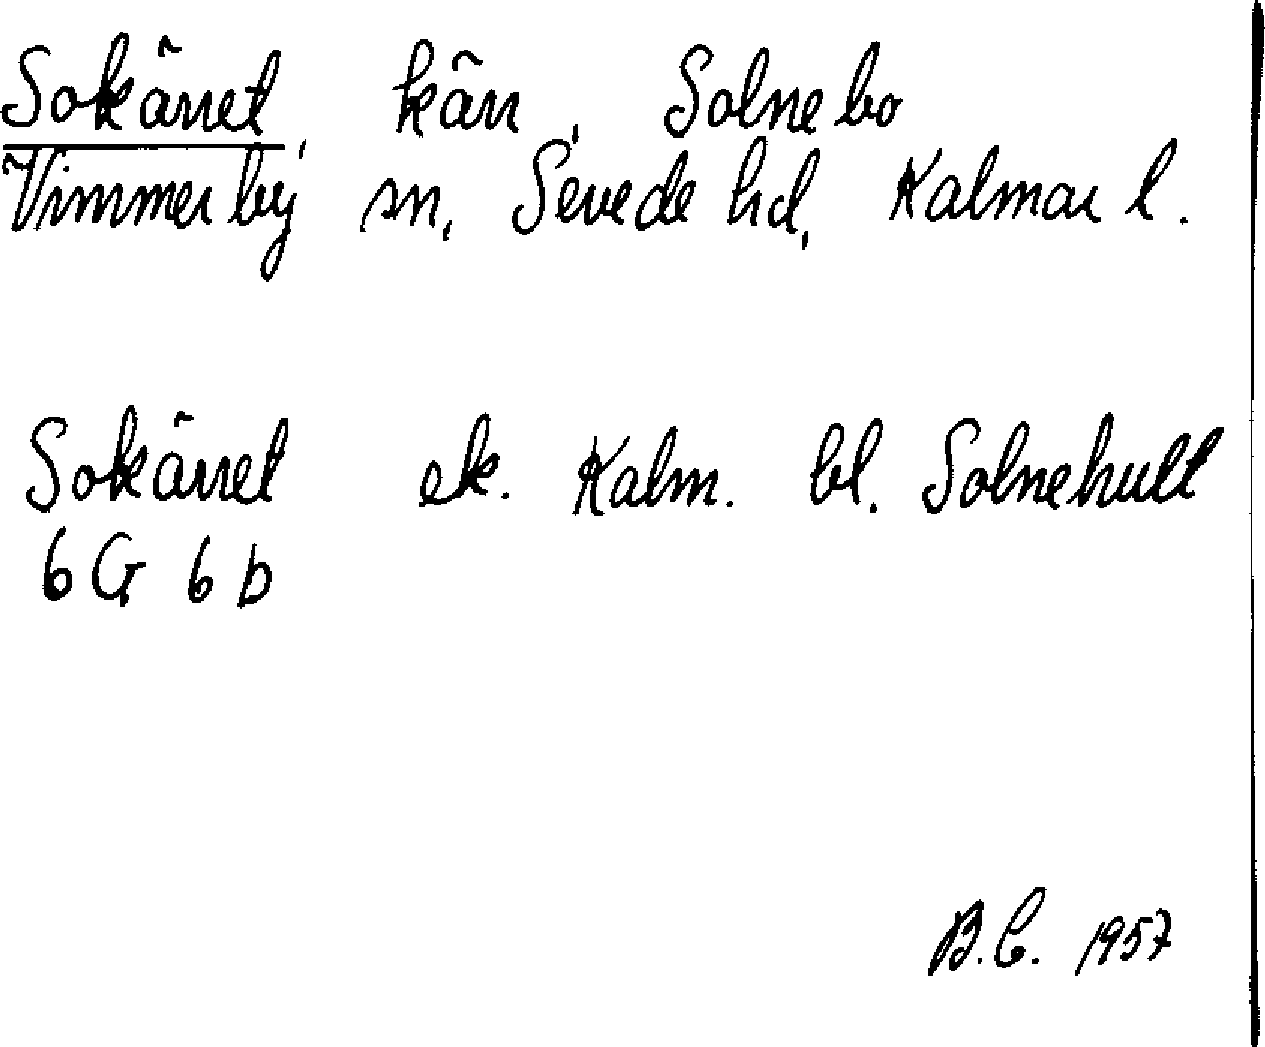 Sokärret, kärr, Solnebo
Vimmerby sn, Sevede hd, Kalmar l.
Sokärret ek. Kalm. bl. Solnehult
6G 6b
B.C. 1957